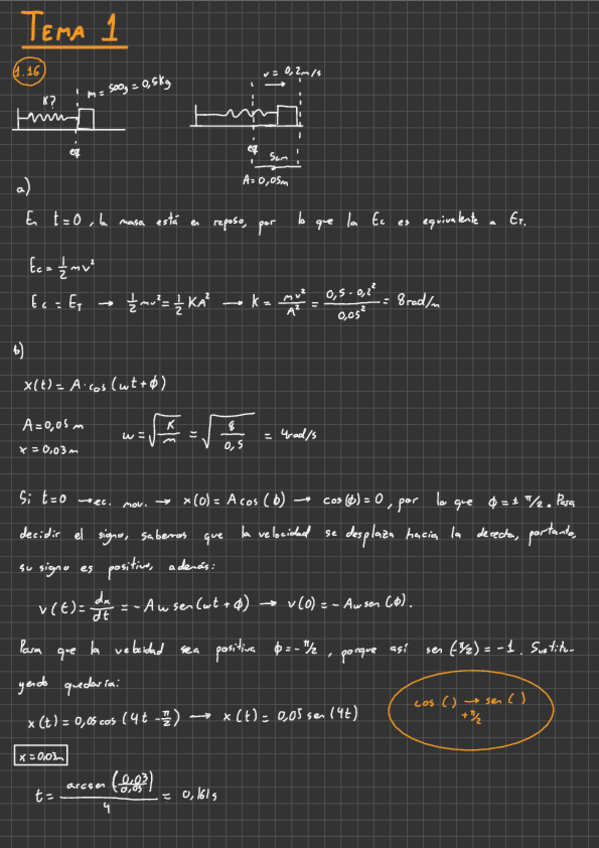 TEMA 1
1.16
K?
m = 500g = 0,5Kg
v = 0,2m/s
eq
eq
5cm
A = 0,05m
a)
En t=0, la masa está en reposo, por lo que la Ec es equivalente a E_T.
Ec = 1/2 mv²
Ec = E_T → 1/2 mv² = 1/2 KA² → K = mv²/A² = 0,5 · 0,2²/0,05² = 8rad/m
b)
x(t) = A·cos(wt+ϕ)
A = 0,05 m
x = 0,03m
w = √(K/m) = √(8/0,5) = 4rad/s
Si t=0 → ec. mov. → x(0) = A cos(ϕ) → cos(ϕ) = 0, por lo que ϕ = ± π/2. Para
decidir el signo, sabemos que la velocidad se desplaza hacia la derecha, portanto,
su signo es positivo, además:
v(t) = dx/dt = -Aw sen(wt+ϕ) → v(0) = -Aw sen(ϕ).
Para que la velocidad sea positiva ϕ = -π/2, porque así sen(-π/2) = -1. Sustitu-
yendo quedaría:
x(t) = 0,05 cos(4t - π/2) → x(t) = 0,05 sen(4t)
cos ( ) → sen ( )
+π/2
x = 0,03m
t = arcsen(0,03/0,05)/4 = 0,161s